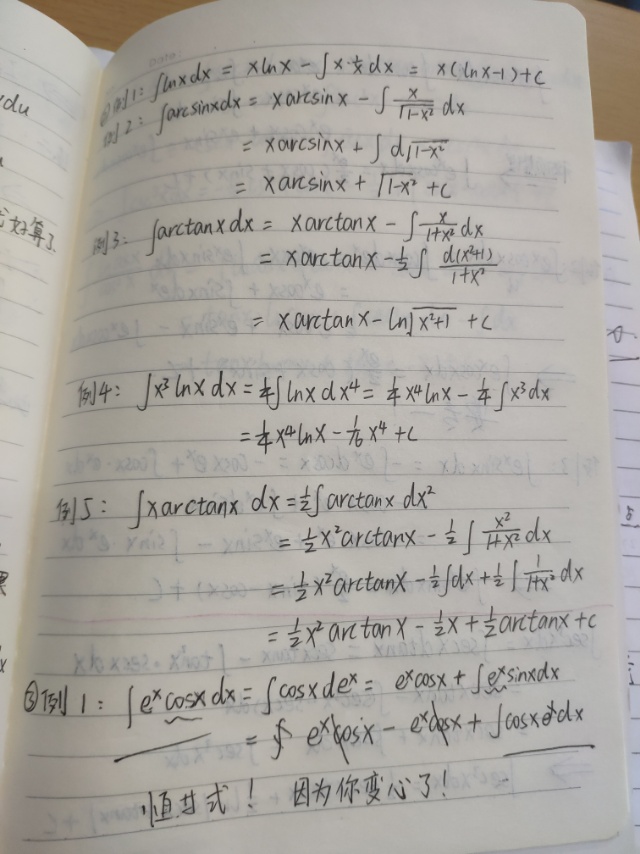 ② 例1: ∫lnxdx = xlnx - ∫x·1/x dx = x(lnx-1)+c
例2: ∫arcsinxdx = xarcsinx - ∫ x/√(1-x²) dx
= xarcsinx + ∫ d√(1-x²)
= xarcsinx + √(1-x²) + c
例3: ∫arctanxdx = xarctanx - ∫ x/(1+x²) dx
= xarctanx - 1/2 ∫ d(x²+1)/(1+x²)
= xarctanx - ln√(x²+1) + c
例4: ∫x³lnxdx = 1/4∫lnxdx⁴ = 1/4x⁴lnx - 1/4∫x³dx
= 1/4x⁴lnx - 1/16x⁴ + c
例5: ∫xarctanx dx = 1/2∫arctanx dx²
= 1/2x²arctanx - 1/2∫ x²/(1+x²) dx
= 1/2x²arctanx - 1/2∫dx + 1/2∫ 1/(1+x²) dx
= 1/2x²arctanx - 1/2x + 1/2arctanx + c
③例1: ∫eˣcosxdx = ∫cosxdeˣ = eˣcosx + ∫eˣsinxdx
= eˣcosx - eˣcosx + ∫cosxeˣdx
恒等式! 因为你变心了!
xdu
好算了